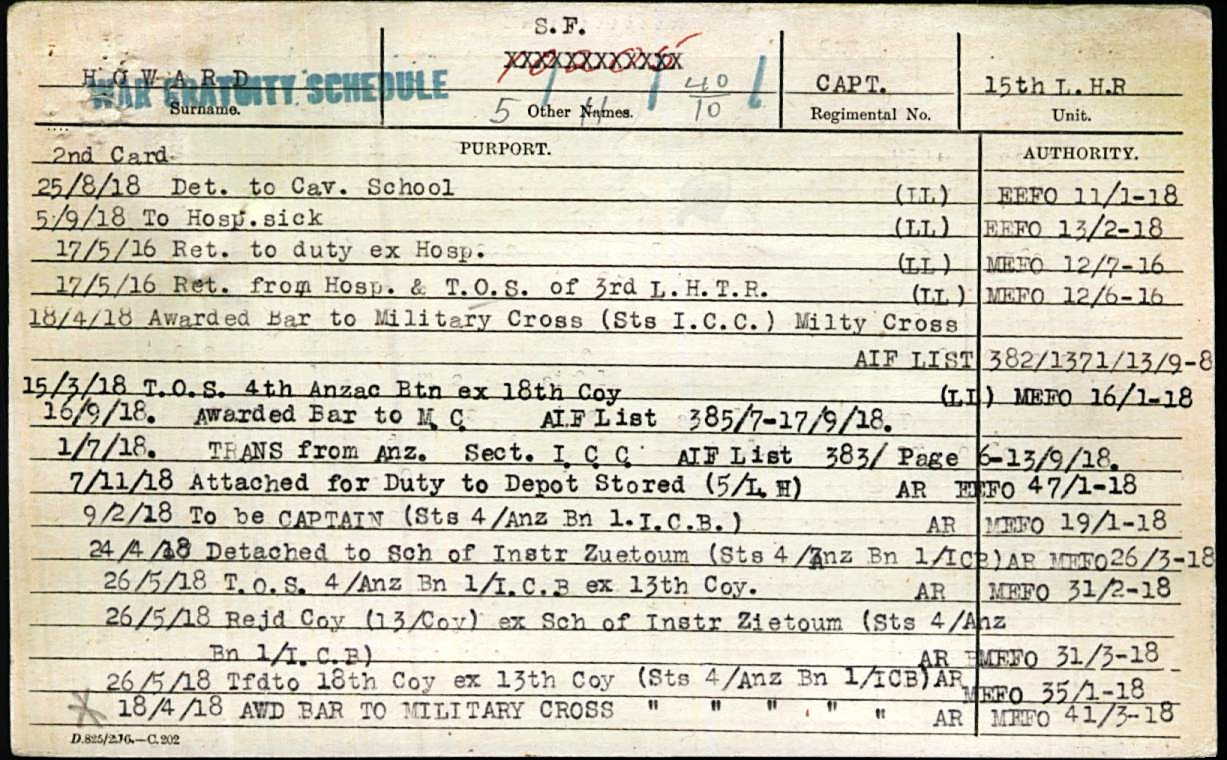 S.F.
XXXXXXXXXXXX
HOWARD
WAR GRATUITY SCHEDULE
40
10
CAPT.
15th L.H.R
Surname.
5 Other Names.
Regimental No.
Unit.
2nd Card
PURPORT.
AUTHORITY.
25/8/18 Det. to Cav. School (LL) EEFO 11/1-18
5/9/18 To Hosp.sick (LL) EEFO 13/2-18
17/5/16 Ret. to duty ex Hosp. (LL) MEFO 12/7-16
17/5/16 Ret. from Hosp. & T.O.S. of 3rd L.H.T.R. (LL) MEFO 12/6-16
18/4/18 Awarded Bar to Military Cross (Sts I.C.C.) Milty Cross
AIF LIST 382/1371/13/9-8
15/3/18 T.O.S. 4th Anzac Btn ex 18th Coy (LL) MEFO 16/1-18
16/9/18. Awarded Bar to M.C. AIF List 385/7-17/9/18.
1/7/18. TRANS from Anz. Sect. I.C.C. AIF List 383/ Page 6-13/9/18.
7/11/18 Attached for Duty to Depot Stored (5/L.H) AR EEFO 47/1-18
9/2/18 To be CAPTAIN (Sts 4/Anz Bn 1.I.C.B.) AR MEFO 19/1-18
24/4/18 Detached to Sch of Instr Zuetoum (Sts 4/Anz Bn 1/ICB)AR MEFO26/3-18
26/5/18 T.O.S. 4/Anz Bn 1/I.C.B ex 13th Coy. AR MEFO 31/2-18
26/5/18 Rejd Coy (13/Coy) ex Sch of Instr Zietoum (Sts 4/Anz
Bn 1/I.C.B) AR MEFO 31/3-18
26/5/18 Tfdto 18th Coy ex 13th Coy (Sts 4/Anz Bn 1/ICB)AR MEFO 35/1-18
18/4/18 AWD BAR TO MILITARY CROSS " " " " " AR MEFO 41/3-18
D.825/2.16.—C.202